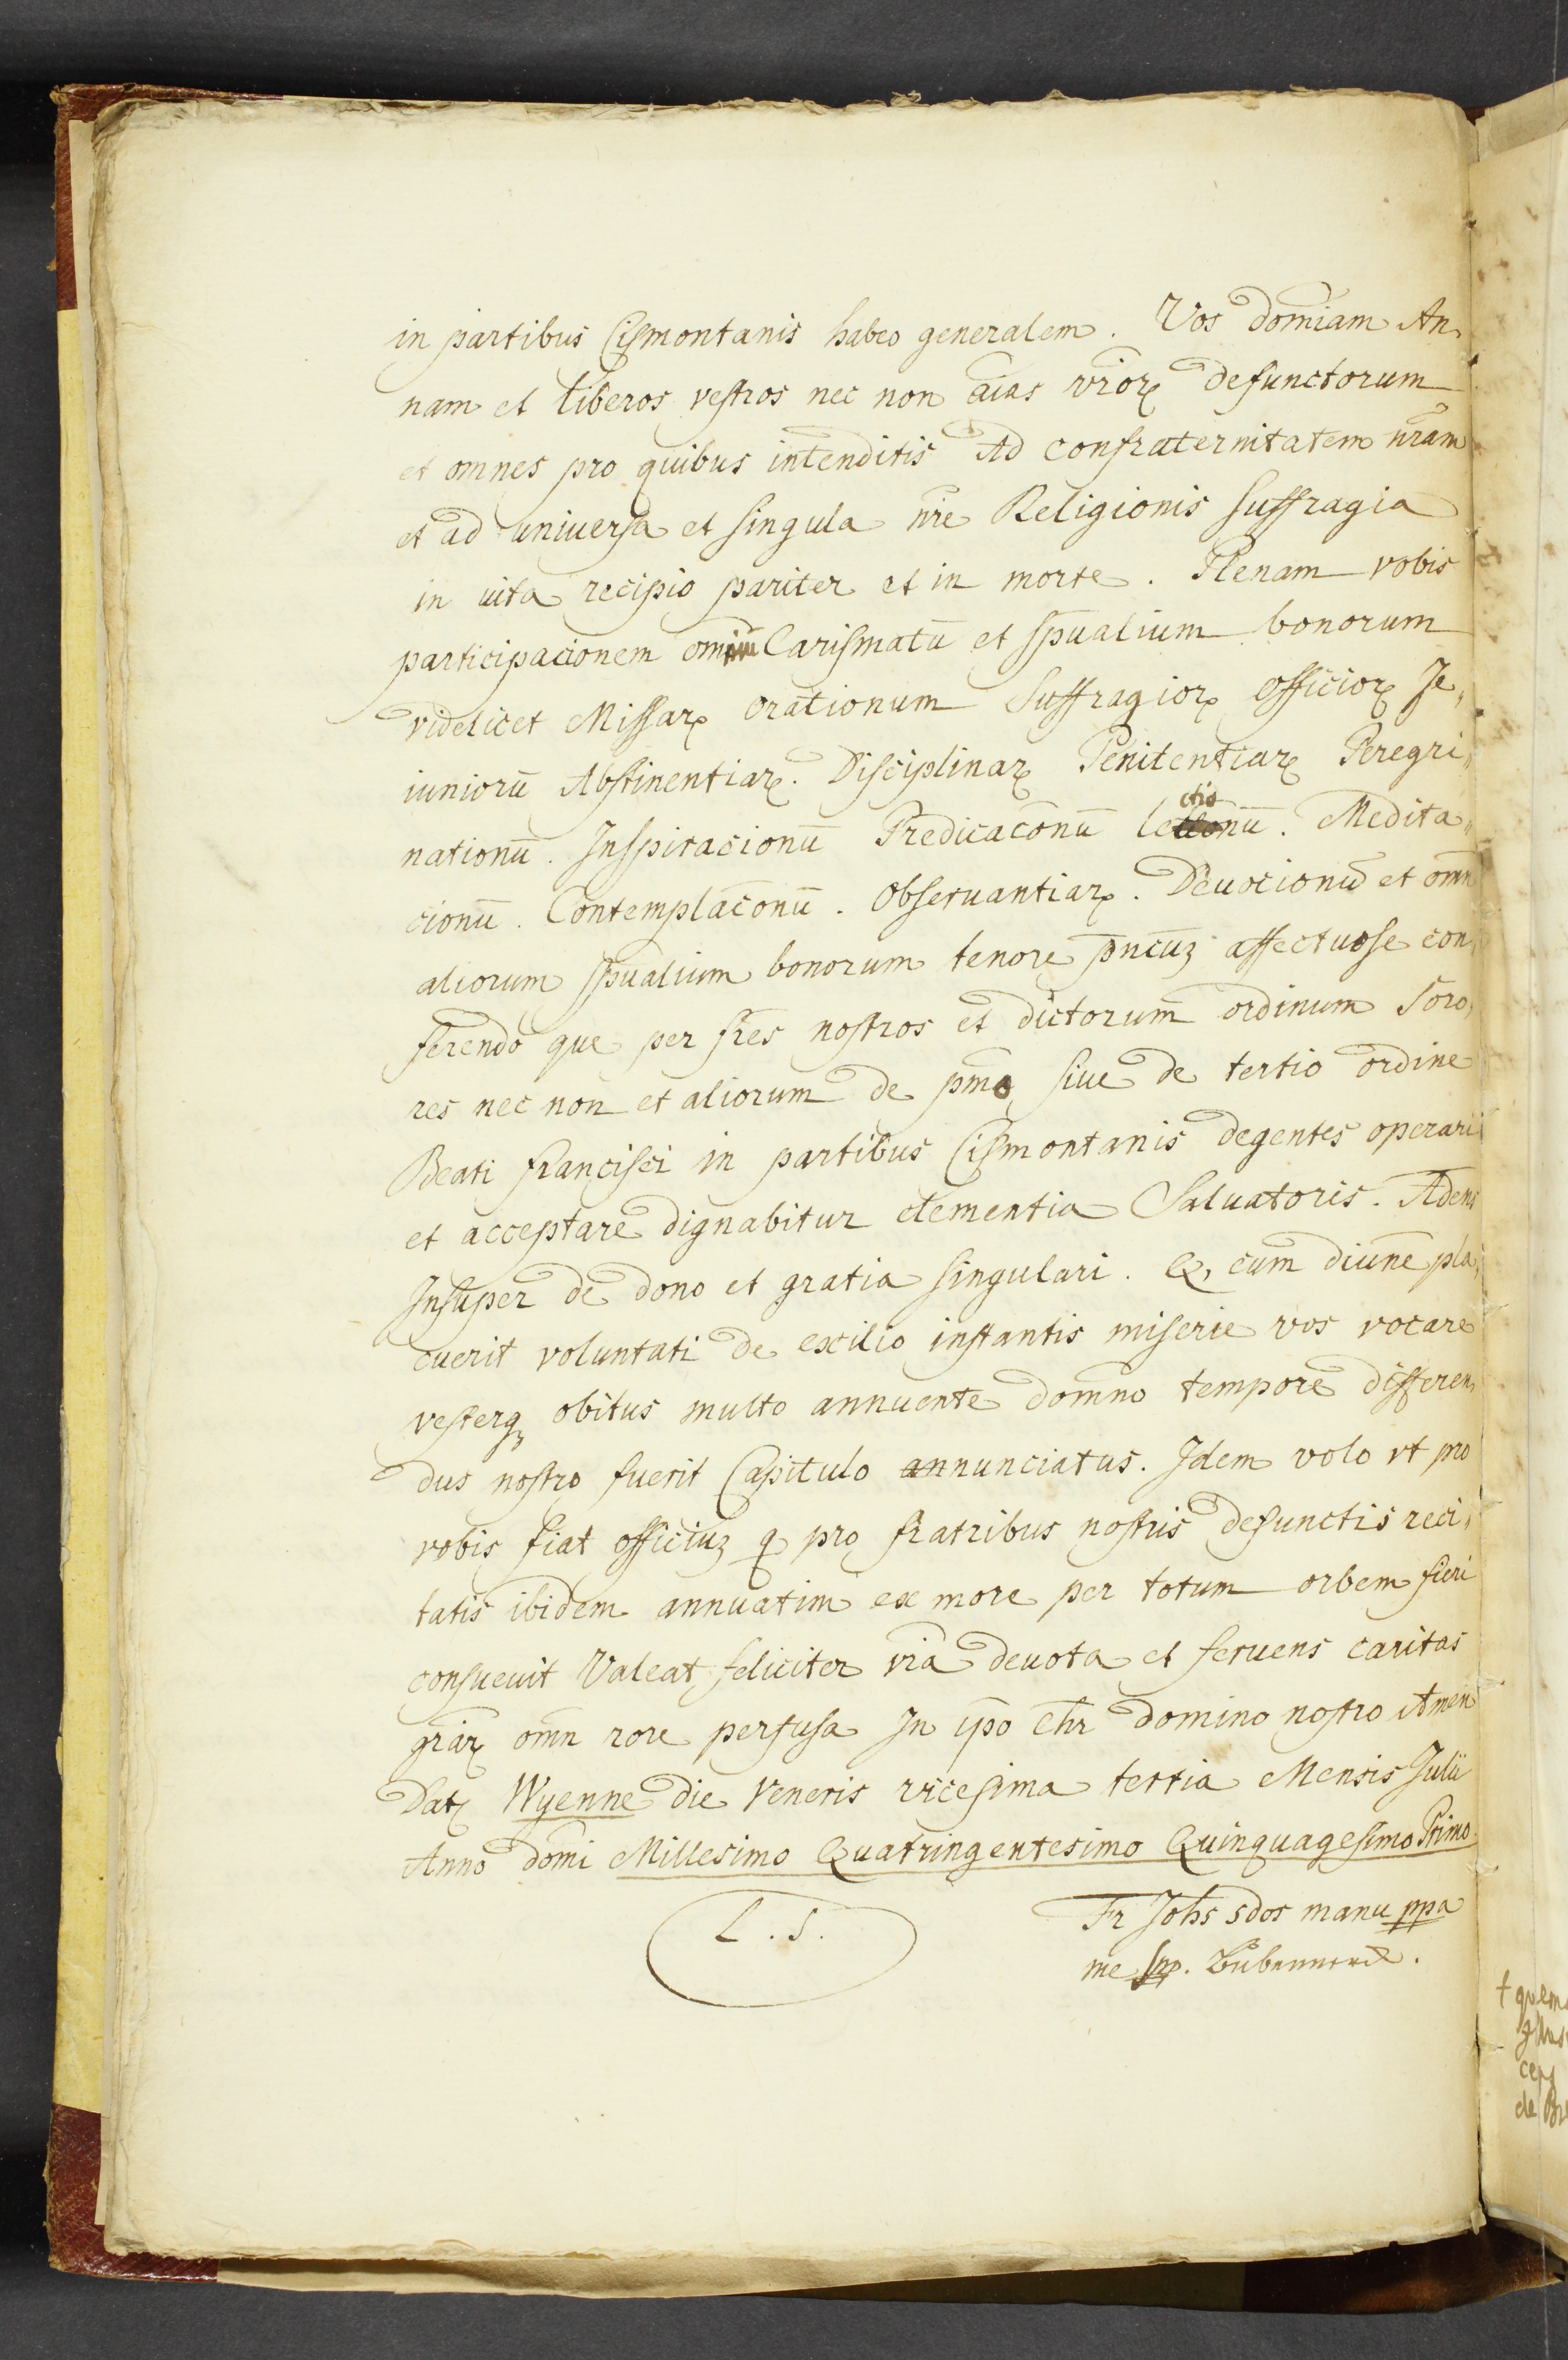 in partibus Cismontanis habeo generalem. Vos domiam An,
nam et liberos vestros nec non aias vrior defunctorum
et omnes pro quibus intenditis Ad confraternitatem nram
et ad uniuersa et singula nre Religionis suffragia
in uita recipio pariter et in morte. Plenam vobis
participacionem omniu Carismatū et spualium bonorum
videlicet Missarꝝ orationum Suffragiorꝝ officiorꝝ Je,,
iuniorū Abstinentiarꝝ. Disciplinarꝝ Penitentiarꝝ Peregri,,
nationū. Inspiracionū Predicacōnū lectionū. Medita,,
cionū. Contemplacōnū. Obseruantiarꝝ. Deuocionū et omn
aliorum spualium bonorum tenore pncuz affectuose con,
ferendo que per fres nostros et dictorum ordinum Soro,
res nec non et aliorum de pmo siue de tertio ordine
Beati francisci in partibus Cismontanis degentes operari
et acceptare dignabitur clementia Saluatoris. Adens
Insuper de dono et gratia singulari. Q, cum diuine pla,
cuerit voluntati de exilio instantis miserie vos vocare
vesterqꝫ obitus multo annuente domno tempore differen,
dus nostro fuerit Capitulo annunciatus. Idem volo vt pro
vobis fiat officiuz q pro fratribus nostris defunctis reci,
tatis ibidem annuatim ex more per totum orbem fieri
consueuit Valeat feliciter vra deuota et feruens caritas
grarꝝ omn rore perfusa In ipo Chr domino nostro Amen
Datꝫ Wyenne die Veneris vicesima tertia Mensis Julii
Anno domi Millesimo Quatringentesimo Quinquagesimo Primo
L. S.
Fr Johs sdos manu ppa
me
† quem
de